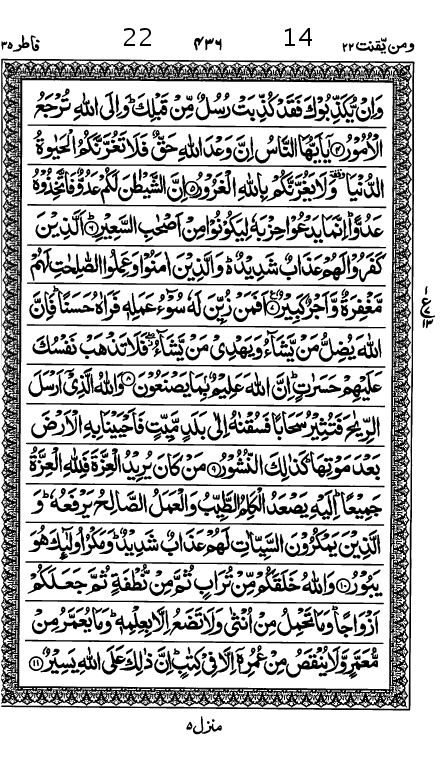 ومن يقنت ٢٢ 14 ٤٣٦ 22 فاطر ٣٥
وَاِنْ يُّكَذِّبُوْكَ فَقَدْ كُذِّبَتْ رُسُلٌ مِّنْ قَبْلِكَ ؕ وَاِلَى اللّٰهِ تُرْجَعُ
الْاُمُوْرُ ﴿۴﴾ يٰۤاَيُّهَا النَّاسُ اِنَّ وَعْدَ اللّٰهِ حَقٌّ فَلَا تَغُرَّنَّكُمُ الْحَيٰوةُ
الدُّنْيَا ۥ وَلَا يَغُرَّنَّكُمْ بِاللّٰهِ الْغَرُوْرُ ﴿۵﴾ اِنَّ الشَّيْطٰنَ لَكُمْ عَدُوٌّ فَاتَّخِذُوْهُ
عَدُوًّا ؕ اِنَّمَا يَدْعُوْا حِزْبَهٗ لِيَكُوْنُوْا مِنْ اَصْحٰبِ السَّعِيْرِ ؕ﴿۶﴾ اَلَّذِيْنَ
كَفَرُوْا لَهُمْ عَذَابٌ شَدِيْدٌ ؕ۬ وَالَّذِيْنَ اٰمَنُوْا وَعَمِلُوا الصّٰلِحٰتِ لَهُمْ
مَّغْفِرَةٌ وَّاَجْرٌ كَبِيْرٌ ﴿۷﴾ اَفَمَنْ زُيِّنَ لَهٗ سُوْٓءُ عَمَلِهٖ فَرَاٰهُ حَسَنًا ؕ فَاِنَّ
اللّٰهَ يُضِلُّ مَنْ يَّشَآءُ وَيَهْدِىْ مَنْ يَّشَآءُ ۖ فَلَا تَذْهَبْ نَفْسُكَ
عَلَيْهِمْ حَسَرٰتٍ ؕ اِنَّ اللّٰهَ عَلِيْمٌۢ بِمَا يَصْنَعُوْنَ ﴿۸﴾ وَاللّٰهُ الَّذِىْۤ اَرْسَلَ
الرِّيٰحَ فَتُثِيْرُ سَحَابًا فَسُقْنٰهُ اِلٰى بَلَدٍ مَّيِّتٍ فَاَحْيَيْنَا بِهِ الْاَرْضَ
بَعْدَ مَوْتِهَا ؕ كَذٰلِكَ النُّشُوْرُ ﴿۹﴾ مَنْ كَانَ يُرِيْدُ الْعِزَّةَ فَلِلّٰهِ الْعِزَّةُ
جَمِيْعًا ؕ اِلَيْهِ يَصْعَدُ الْكَلِمُ الطَّيِّبُ وَالْعَمَلُ الصَّالِحُ يَرْفَعُهٗ ؕ وَ
الَّذِيْنَ يَمْكُرُوْنَ السَّيِّاٰتِ لَهُمْ عَذَابٌ شَدِيْدٌ ؕ وَمَكْرُ اُولٰٓئِكَ هُوَ
يَبُوْرُ ﴿۱۰﴾ وَاللّٰهُ خَلَقَكُمْ مِّنْ تُرَابٍ ثُمَّ مِنْ نُّطْفَةٍ ثُمَّ جَعَلَكُمْ
اَزْوَاجًا ؕ وَمَا تَحْمِلُ مِنْ اُنْثٰى وَلَا تَضَعُ اِلَّا بِعِلْمِهٖ ؕ وَمَا يُعَمَّرُ مِنْ
مُّعَمَّرٍ وَّلَا يُنْقَصُ مِنْ عُمُرِهٖۤ اِلَّا فِىْ كِتٰبٍ ؕ اِنَّ ذٰلِكَ عَلَى اللّٰهِ يَسِيْرٌ ﴿۱۱﴾
١
ع
١٣
منزل ٥